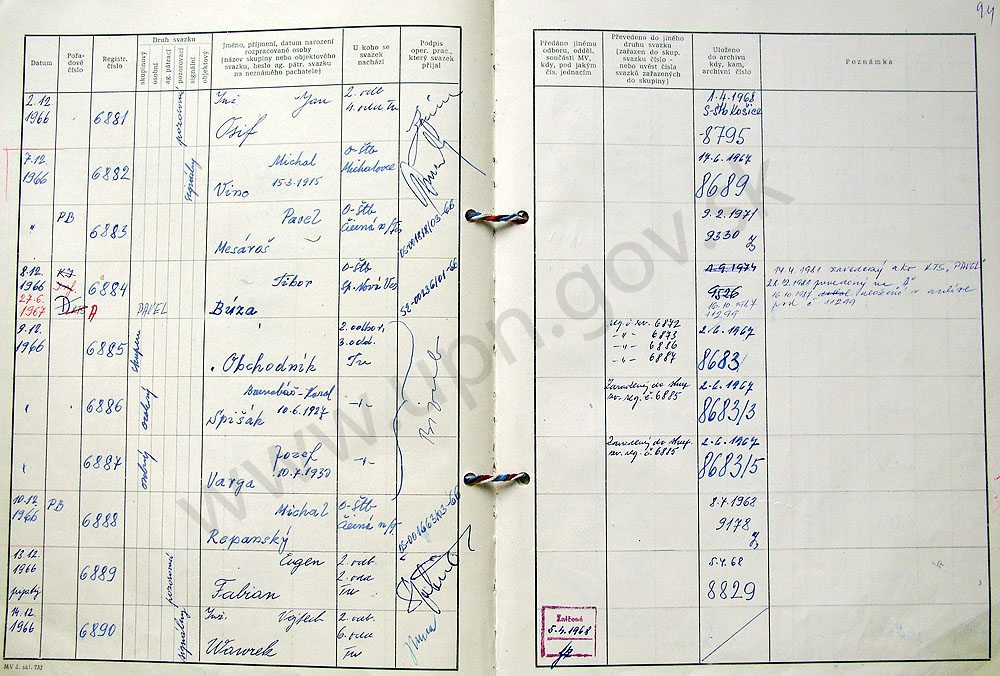 94
Datum
Pořadové číslo
Registr. číslo
Druh svazku
skupinový
osobní
ag. pátrací
pozorovací
signální
objektový
Jméno, příjmení, datum narození
rozpracované osoby
(název skupiny nebo objektového
svazku, heslo ag. pátr. svazku
na neznámého pachatele)
U koho se
svazek
nachází
Podpis
oper. prac.,
který svazek
přijal
Předáno jinému
odboru, odděl.
součásti MV,
kdy, pod jakým
čís. jednacím
Převedeno do jiného
druhu svazku
(zařazen do skup.
svazku číslo -
nebo uvést čísla
svazků zařazených
do skupiny)
Uloženo
do archivu
kdy, kam,
archivní číslo
Poznámka
2.12.
1966
6881
Ing. Jan
Osif
2. odb
4. odd Tv
1.4.1968
S-Štb Košice
8795
7.12.
1966
6882
signálny
Michal
15.3.1915
Vino
O-Štb
Michalovce
14.6.1967
8689
"
PB
6883
Pavel
Mesároš
O-Štb
Čierná n/T
05-001818/03-66
9.2.1971
9330
8.12.
1966
27.6.
1967
A
6884
PAVEL
Tibor
Búza
O-Štb
Sp. Nová Ves
58-00236/01-66
4.9.1974
9526
16.10.1987
11299
14.4.1981 zavedený ako KTS "PAVEL"
na "A"
16.10.1987 uložené v archíve
pod č. 11299
9.12.
1966
6885
skupin
Obchodník
2. odbor,
3. odd.
Tv
reg. č. sv. 6872
-"- 6873
-"- 6886
-"- 6887
2.6.1967
8683/
"
6886
osobný
Barnabáš-Karol
10.6.1927
Spišák
-"-
Zaradený do skup.
sv. reg. č. 6885
2.6.1967
8683/3
"
6887
osobný
Jozef
10.7.1930
Varga
-"-
Zavedený do skup.
sv. reg. č. 6885
2.6.1967
8683/5
10.12.
1966
PB
6888
Michal
Repanský
O-Štb
Čierná n/T
05-001663/03-66
8.7.1968
9178
13.12.
1966
6889
Eugen
Fabian
2. odb.
2. odd
Tv
5.4.68
8829
14.12.
1966
6890
signálny
Ing. Vojtech
Wawrek
2. odb.
6. odd
Tv
5.4.1968
MV č. skl. 732
www.upn.gov.sk